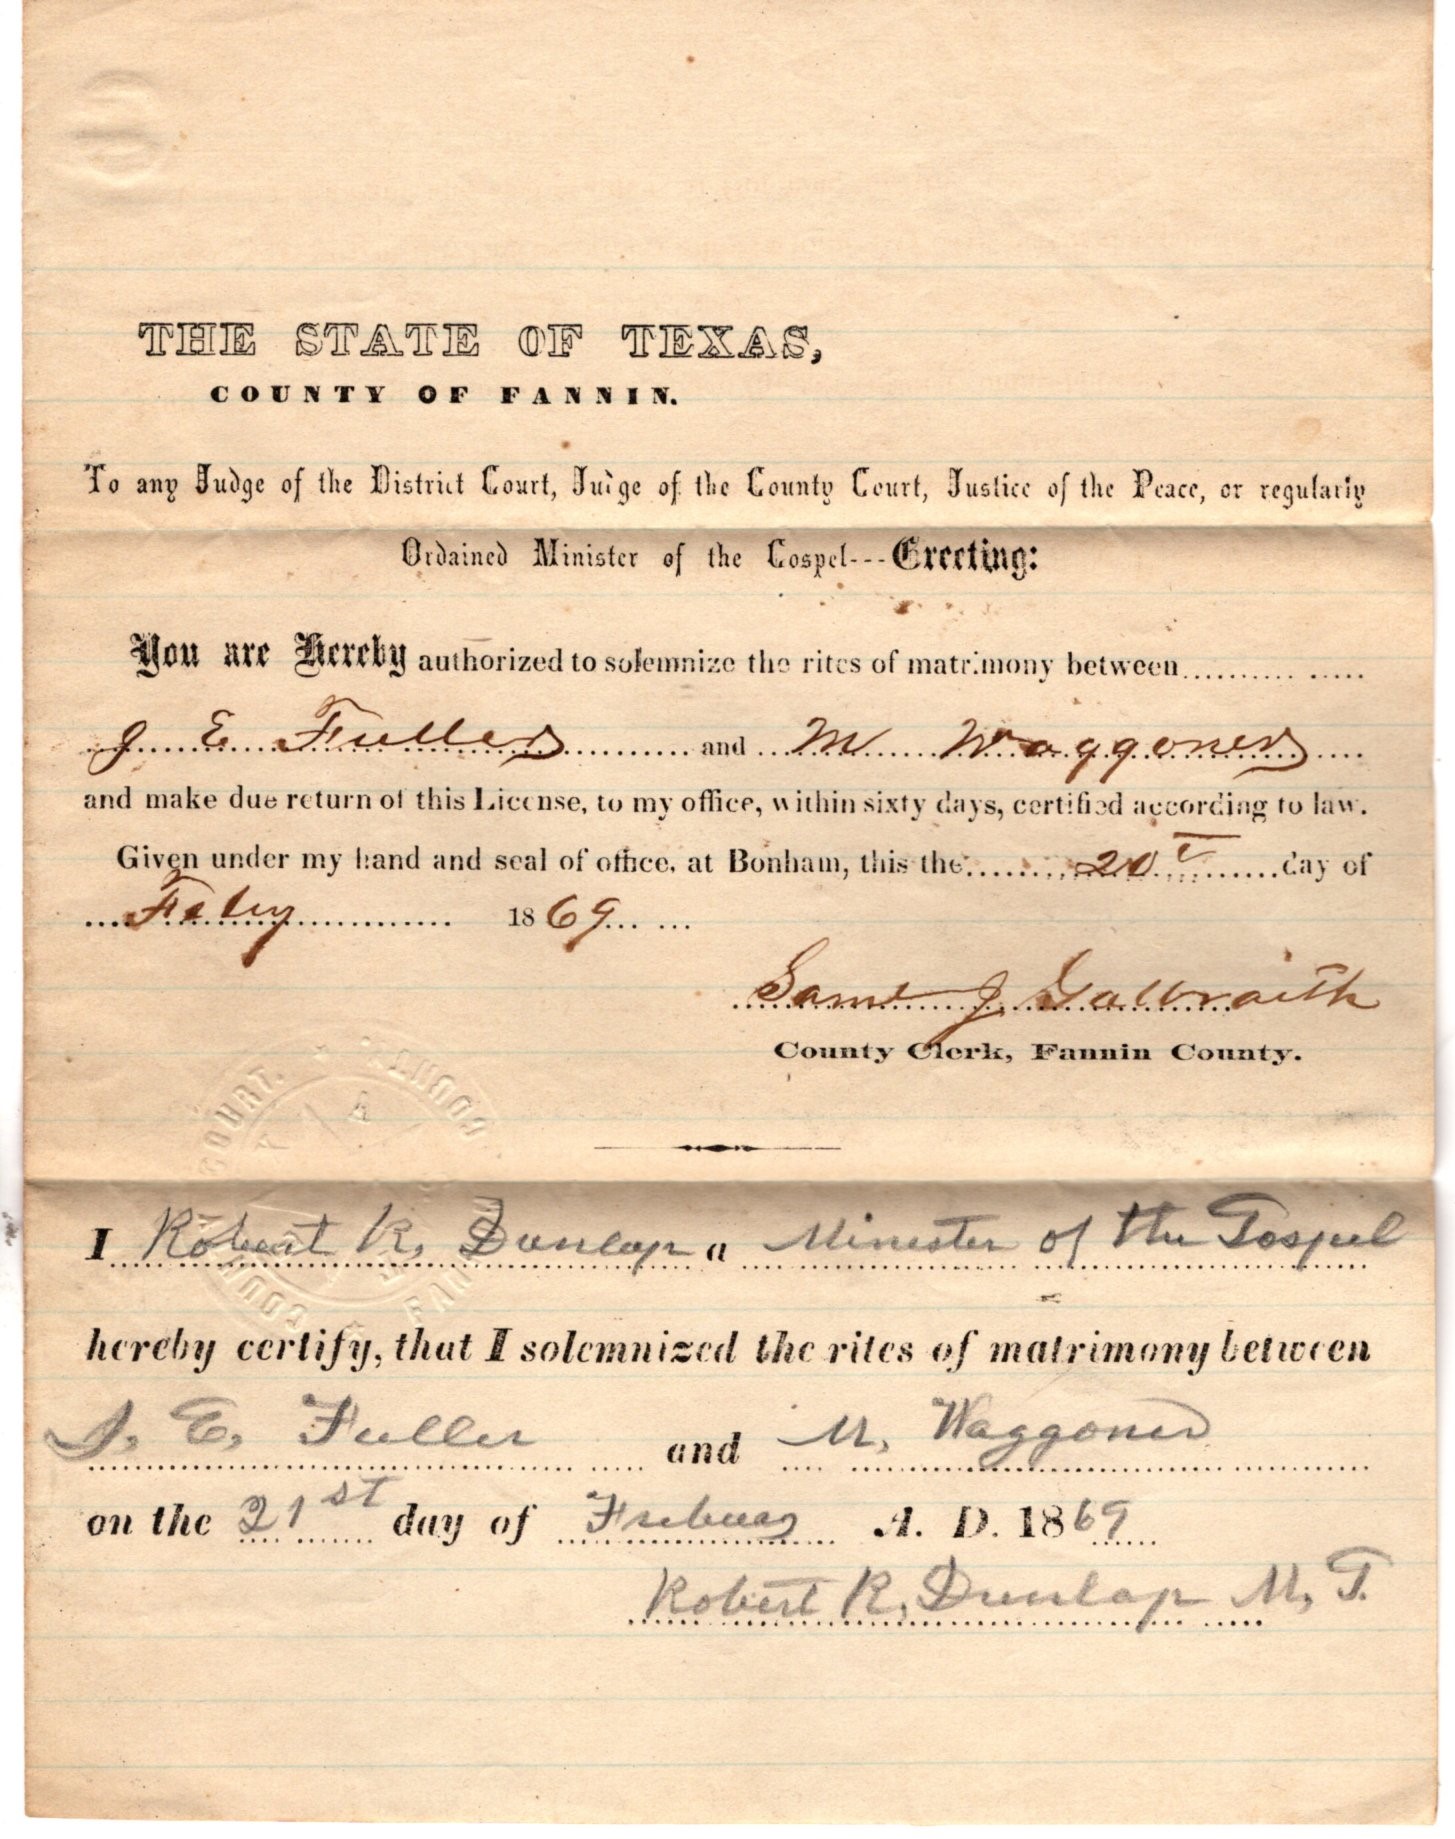 THE STATE OF TEXAS,
COUNTY OF FANNIN.
To any Judge of the District Court, Judge of the County Court, Justice of the Peace, or regularly
Ordained Minister of the Gospel---Greeting:
You are Hereby authorized to solemnize the rites of matrimony between
J E Fuller and M Waggoner
and make due return of this License, to my office, within sixty days, certified according to law.
Given under my hand and seal of office, at Bonham, this the 20t day of
Feby 1869
Saml J Galbraith
County Clerk, Fannin County.
COUNTY COURT.
I Robert R. Dunlap a Minister of the Gospel
hereby certify, that I solemnized the rites of matrimony between
J. E. Fuller and M. Waggoner
on the 21st day of Febuay A. D. 1869
Robert R. Dunlap M. G.